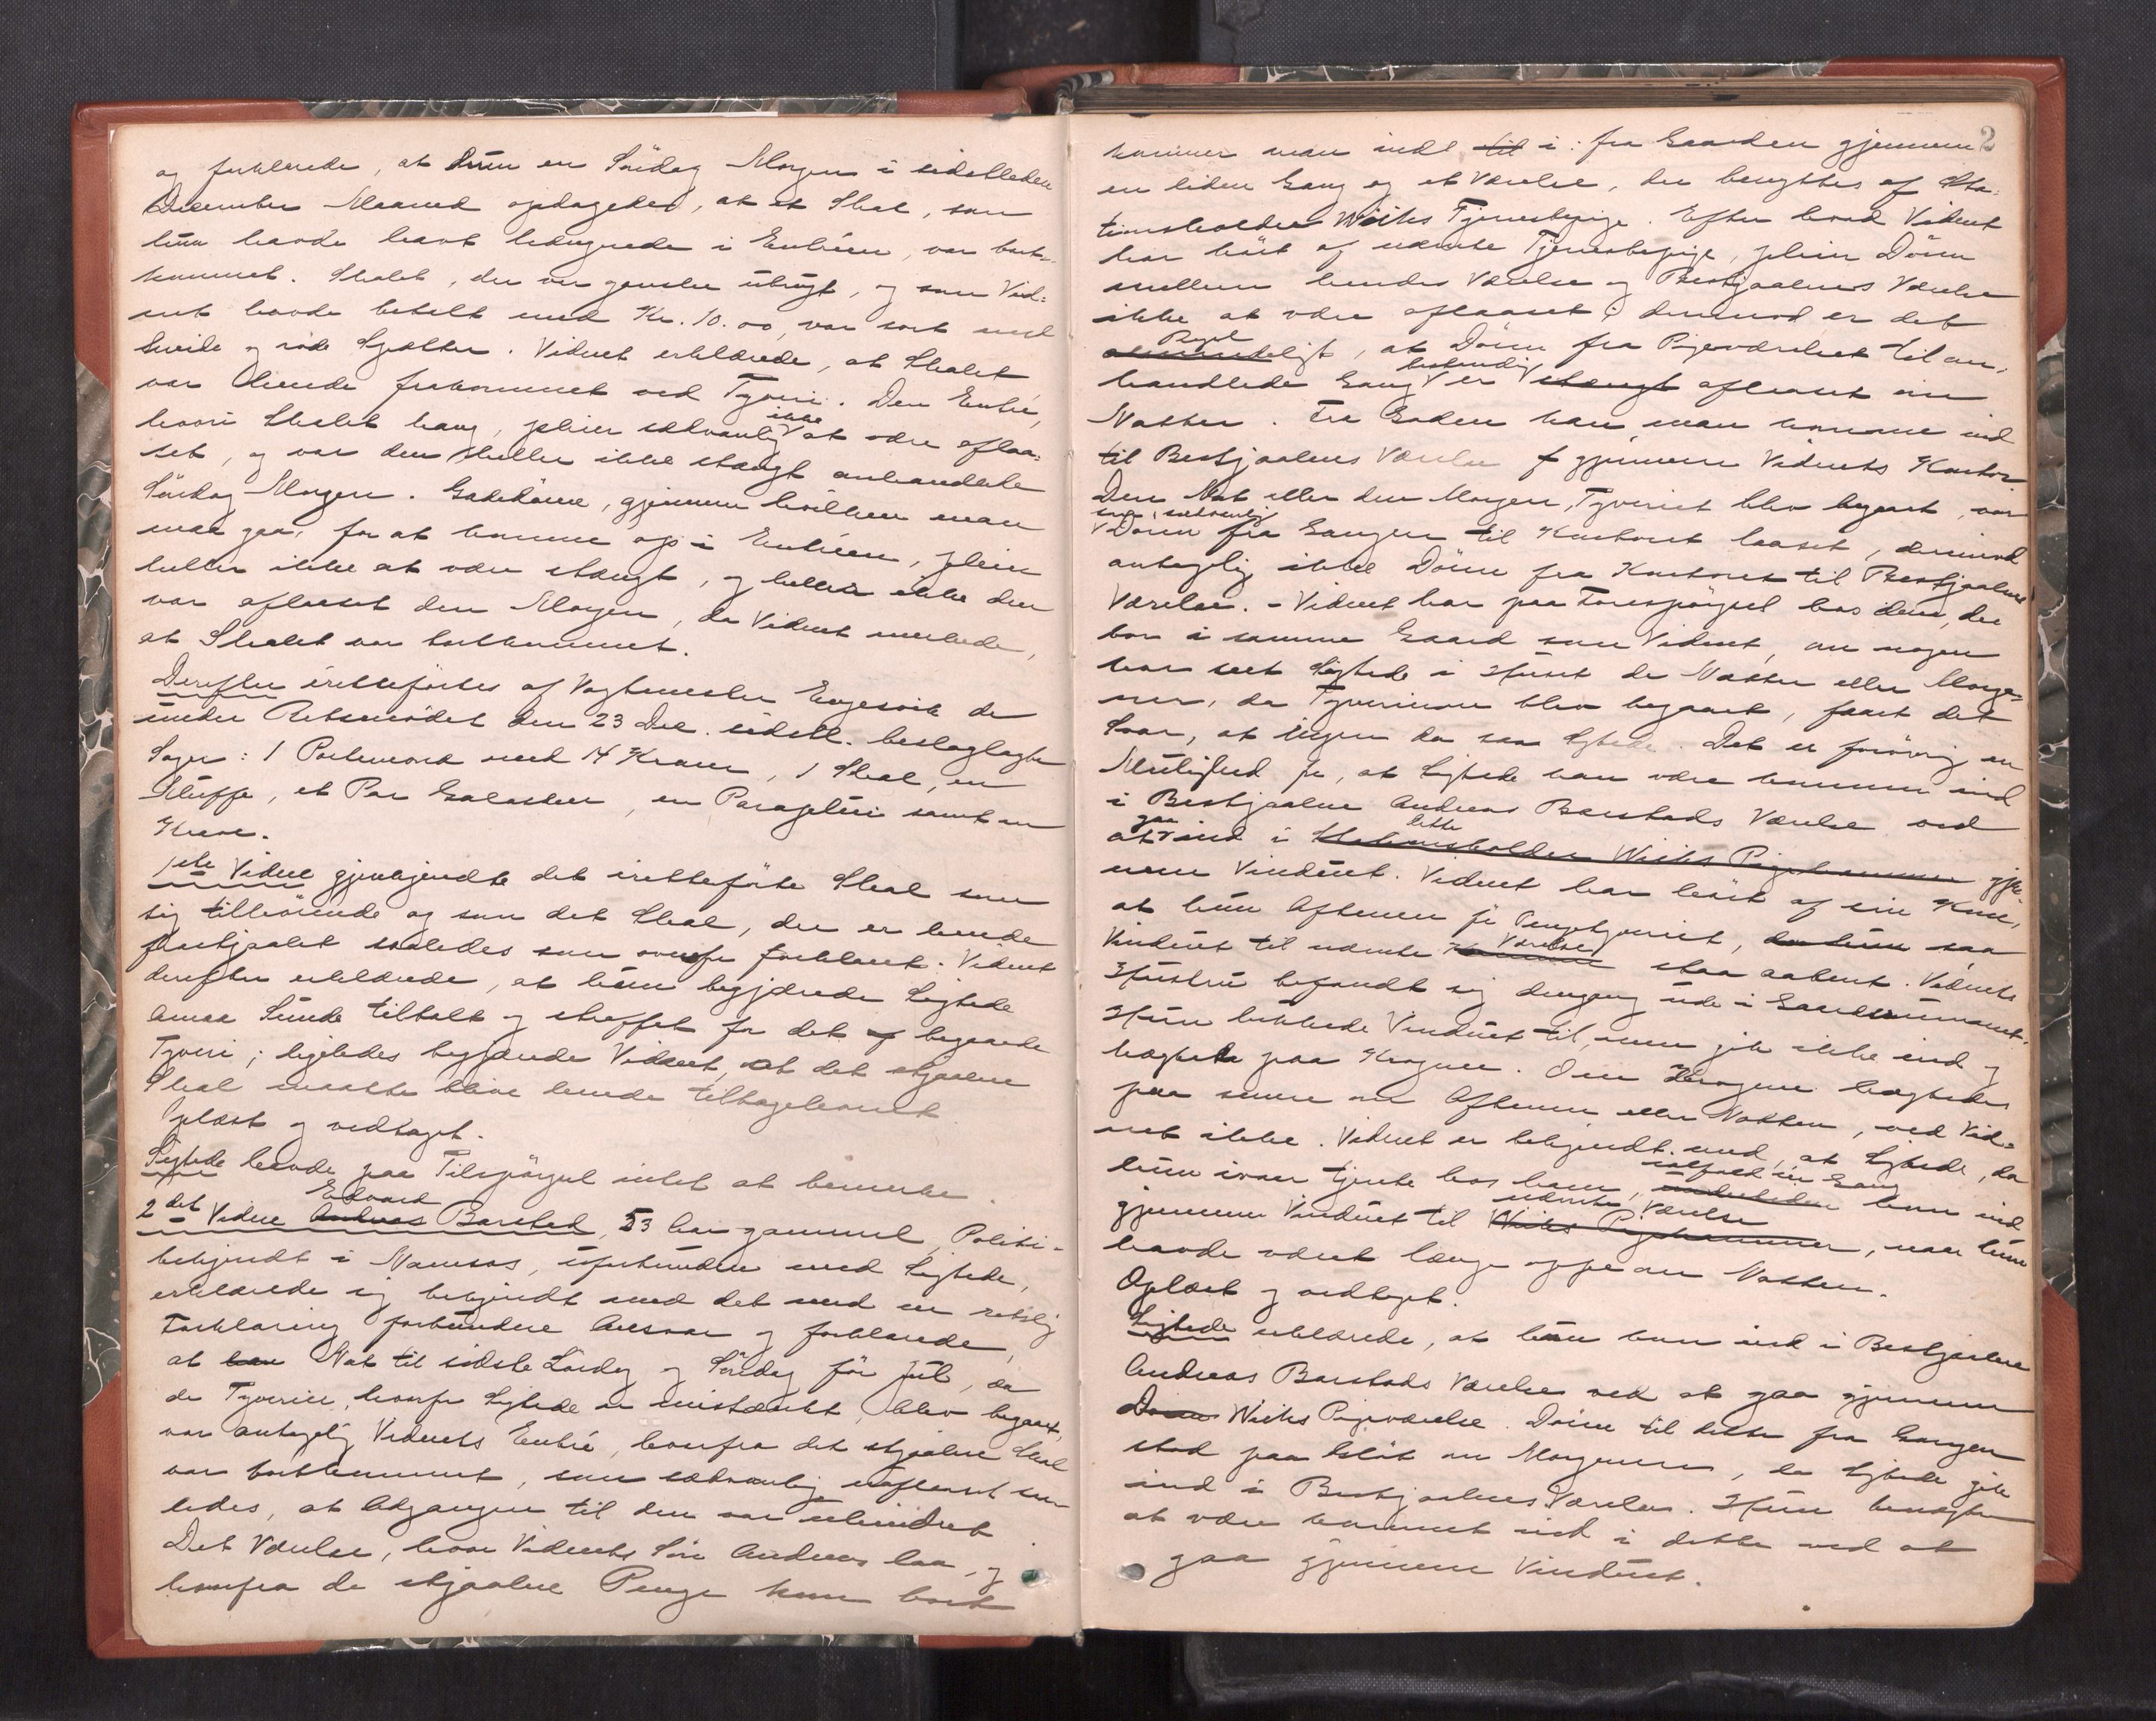 og forklarede, at hun en Söndag Morgen i sidstleden
December Maaned opdagede, at et Shal, som
hun havde havt hængende i Entréen, var bort-
kommet. Shalet, der var ganske ubrugt, og som Vid-
net havde betalt med Kr. 10.00, var sort med
hvide og röde Spætter. Vidnet erklærede, at Shalet
var hende frakommet ved Tyveri. Den Entré,
hvori Shalet hang, pleier sædvanlig ikke at være aflaa-
set, og var den heller ikke stængt omhandlede
Söndag Morgen. Gadedören, gjennem hvilken man
maa gaa, for at komme op i Entréen, pleier
heller ikke at være stængt, og heller ikke den
var aflaaset den Morgen, da Vidnet merkede,
at Shalet var bortkommet.
Derefter irettefürtes af Vagtmester Engesvik de
under Retsmödet den 23 Dec. sidstl. beslaglagte
Sager: 1 Portemonæ med 14 Kroner, 1 Shal, en
Muffe, et Par Galosher, en Paraplui samt en
Krave.
1ste Vidne gjenkjendte det irettefürte Shal som
sig tilhörende og som det Shal, der er hende
frastjaalet saaledes som ovenfor forklaret. Vidnet
derefter erklærede, at hun begjærede Sigtede
Anna Sunde tiltalt og straffet for det af begaaede
Tyveri; ligeledes begjærede Vidnet, at det stjaalne
Shal maatte blive hende tilbageleveret
Oplæst og vedtaget.
Sigtede havde paa Tilspörgsel intet at bemerke.
2det Vidne Andreas Edvard Barstad, 53 Aar gammel, Politi-
betjendt i Namsos, uforbunden med Sigtede,
erklærede sig bekjendt med det med en retslig
Forklaring forbundne Ansvar og forklarede,
at Nat til sidste Lördag og Söndag för Jul, da
de Tyverier, hvorfor Sigtede er mistænkt, blev begaaet,
var antagelig Vidnets Entré, hvorfra det stjaalne Shal
var bortkommet, som sædvanlig uaflaaset saa-
ledes, at Adgangen til den var uhindret
Det Værelse, hvor Vidnets Sön Andreas laa, og
hvorfra de stjaalne Penge kom bort
2
kommer man ind til i: fra Gaarden gjennem
en liden Gang og et Værelse, der benyttes af Sta-
tionsholder Wiiks Tjenestepige. Efter hvad Vidnet
har hört af nævnte Tjenestepige, pleier Dören
mellem hendes Værelse og Bestjaalenes Værelse
ikke at være aflaaset; derimod er det
almindeligt Regel, at Dören fra Pigeværelset til om-
handlede Gang bestandig er stængt aflaaset om
Natten. Fra Gaden kan man komme ind
til Bestjaalnes Værelse gjennem Vidnets Kontor.
Den Nat eller den Morgen, Tyveriet blev begaaet, var
som sædvanlig
Dören fra Gangen til Kontoret laaset, derimod
antagelig ikke Dören fra Kontoret til Bestjaalnes
Værelse. – Vidnet har paa Forespörgsel hos dem, der
bor i samme Gaard som Vidnet, om nogen
har seet Sigtede i Huset de Nætter eller Morge-
ner, da Tyverierne blev begaaet, faaet det
Svar, at ingen da saa Sigtede. Det er forövrig en
Mulighed for, at Sigtede kan være kommen ind
i Bestjaalne Andreas Barstads Værelse ved
at gaa ind i Stationsholder Wiiks Pigekammer dette gjen-
nem Vinduet. Vidnet har hört af sin Kone,
at hun Aftenen för Pengetyveriet, da hun saa
Vinduet til nævnte Kammer Værelse staa aabent. Vidnets
Hustru befandt sig dengang ude i Gaardsrummet.
Hun lukkede Vinduet til, men gik ikke ind og
hægtede paa Krogene. Om Krogene hægtedes
paa senere om Aftenen eller Natten, ved Vid-
net ikke. Vidnet er bekjendt med, at Sigtede, da
hun ivaar tjente hos ham, undertiden ialfald én Gang kom ind
gjennem Vinduet til Wiiks Pigekammer nævnte Værelse, naar hun
havde været længe oppe om Natten.
Oplæst og vedtaget.
Sigtede erklærede, at hun kom ind i Bestjaalne
Andreas Barstads Værelse ved at gaa gjennem
Dören Wiiks Pigeværelse. Dören til dette fra Gangen
stod paa Klöt om Morgenen, da Sigtede gik
ind i Bestjaalnes Værelse. Hun benægter
at være kommet ind i dette ved at
gaa gjennem Vinduet.